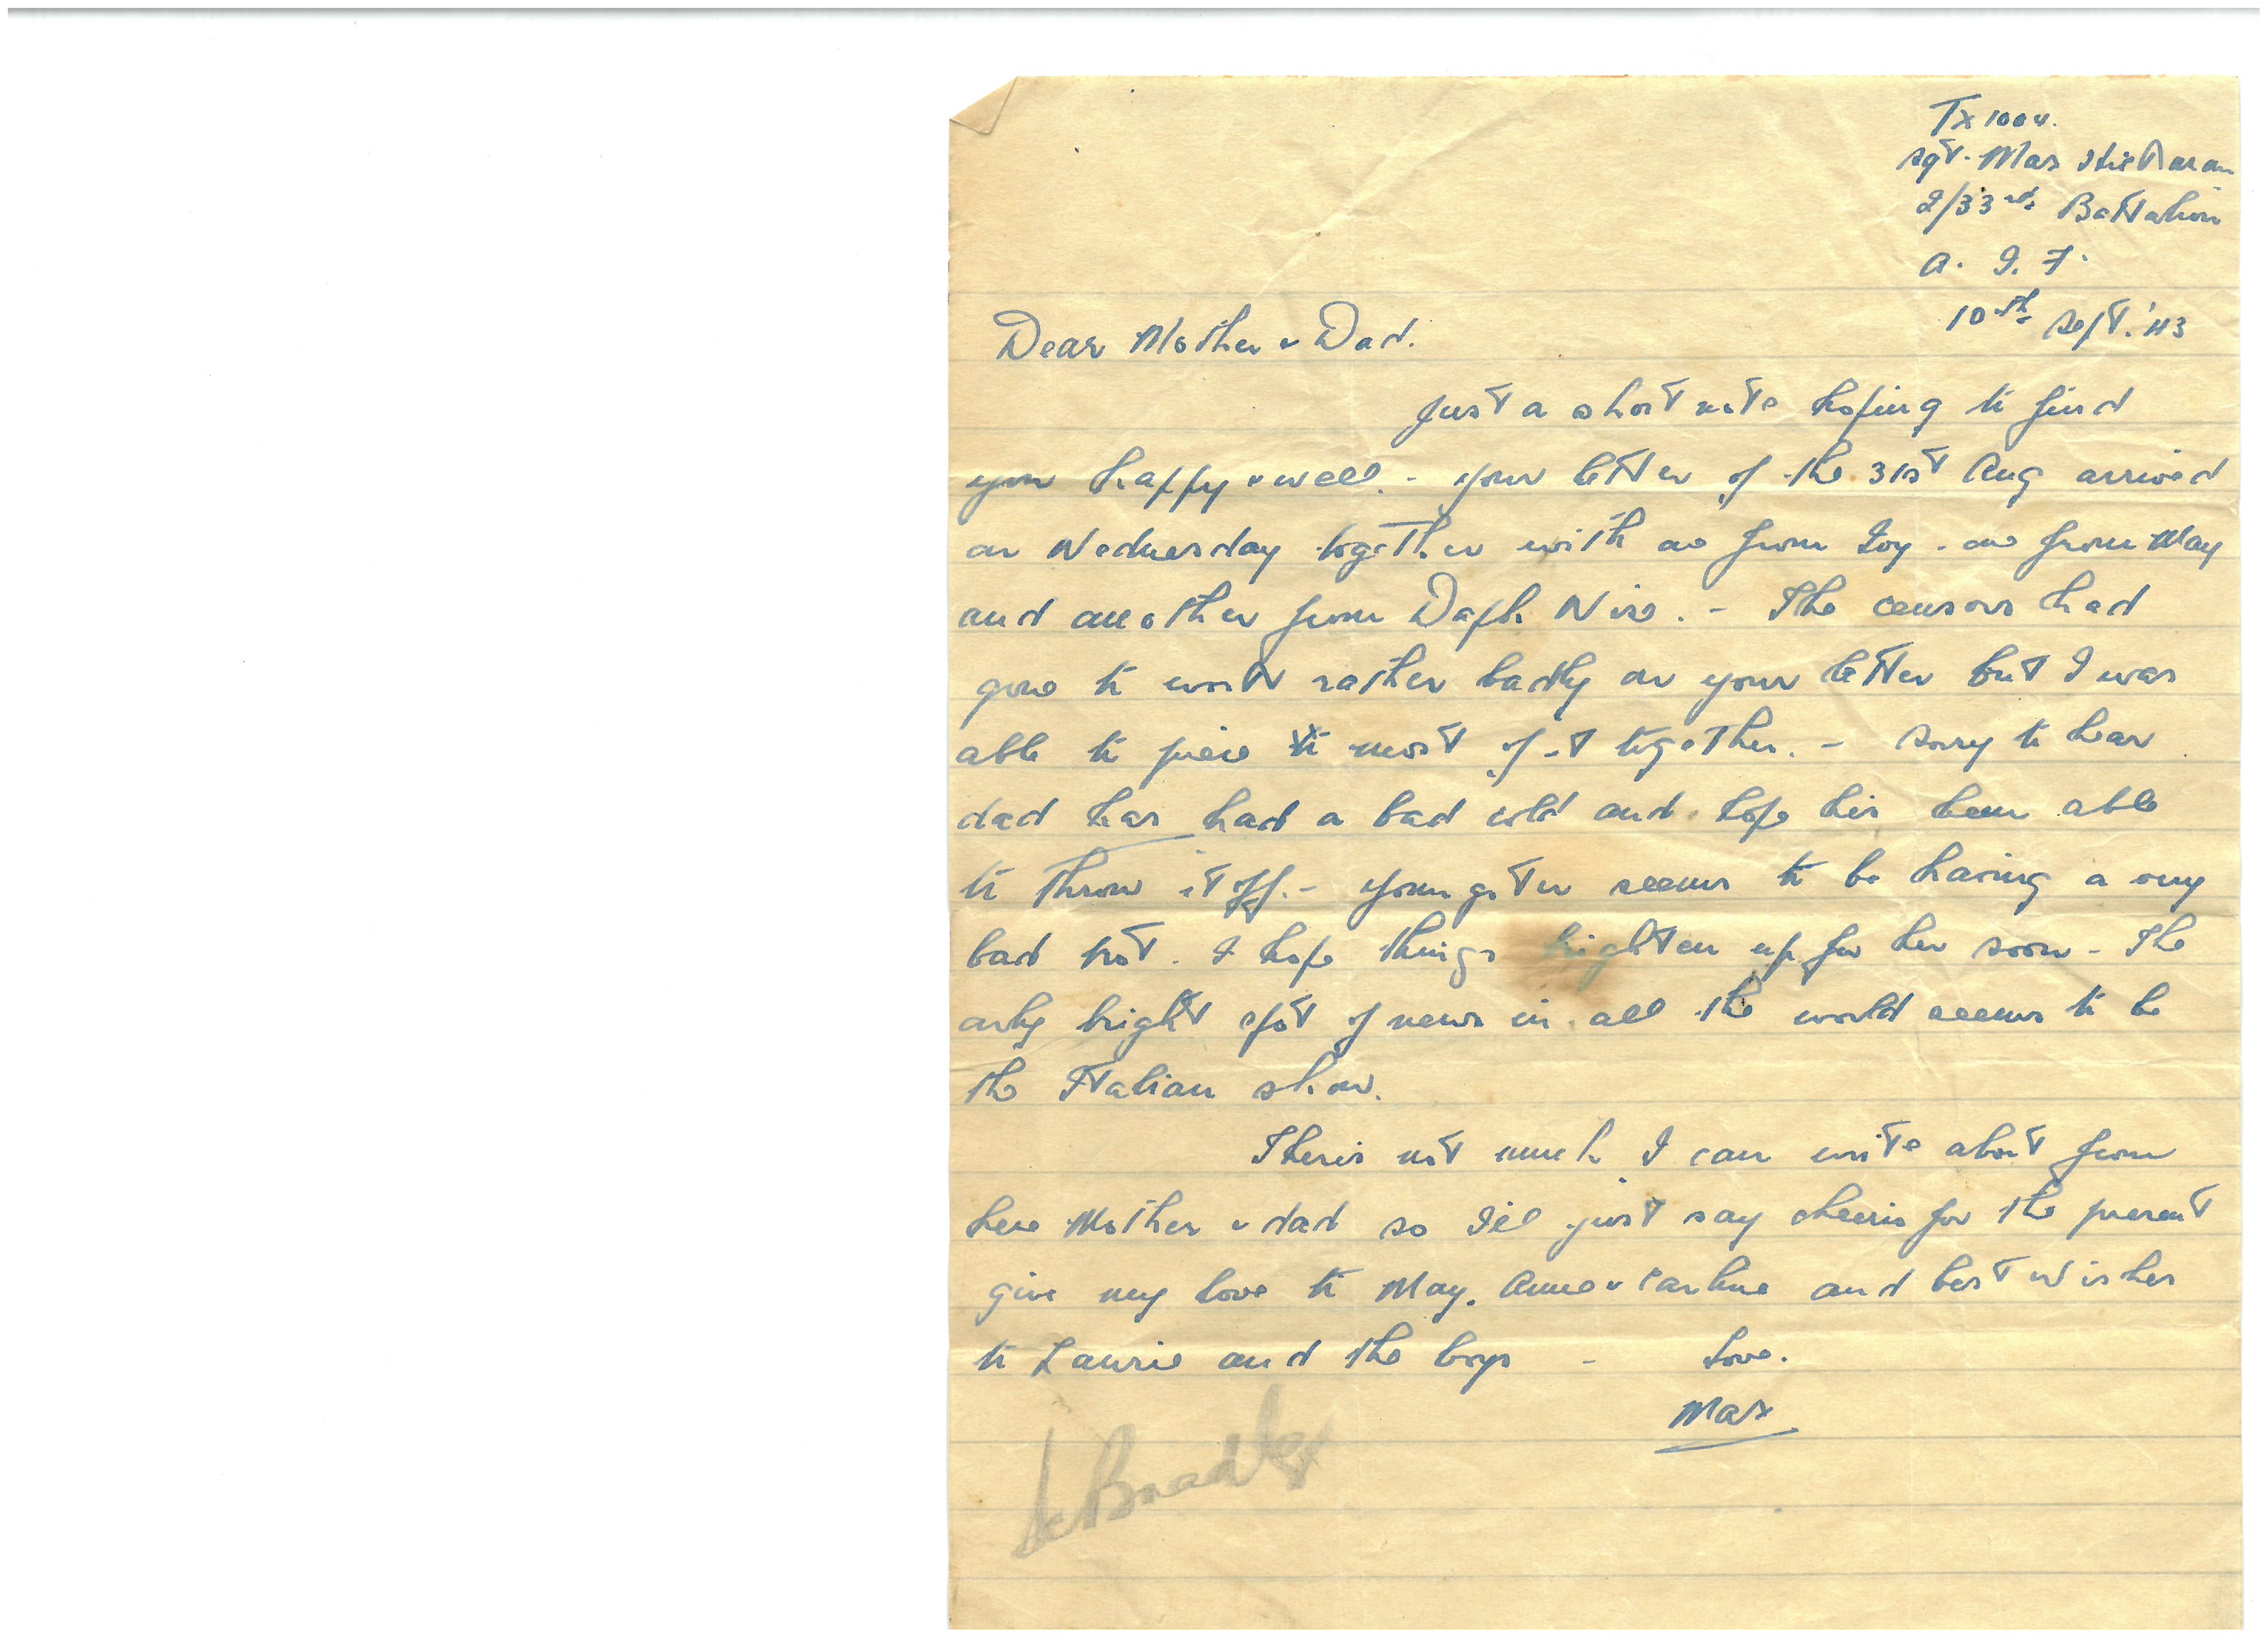 TX1004.
Sgt. Max Hickman
2/33rd Battalion
A. I. F.
10th Sept. '43
Dear Mother & Dad.
Just a short note hoping to find
you happy & well. - your letter of the 31st Aug arrived
on Wednesday together with one from Joy - one from May
and another from Daph. - The censors had
gone to work rather badly on your letter but I was
able to piece to most of it together. - Sorry to hear
dad has had a bad cold and hope his been able
to throw it off. - youngster seems to be having a very
bad trot. I hope things brighten up for her soon - The
only bright spot of news in all the world seems to be
the Italian show.
Theris not much I can write about from
here Mother & dad so I'll just say cheerio for the present
give my love to May, Anne & and best wishes
to Laurie and the boys - Love.
Max
Bradley